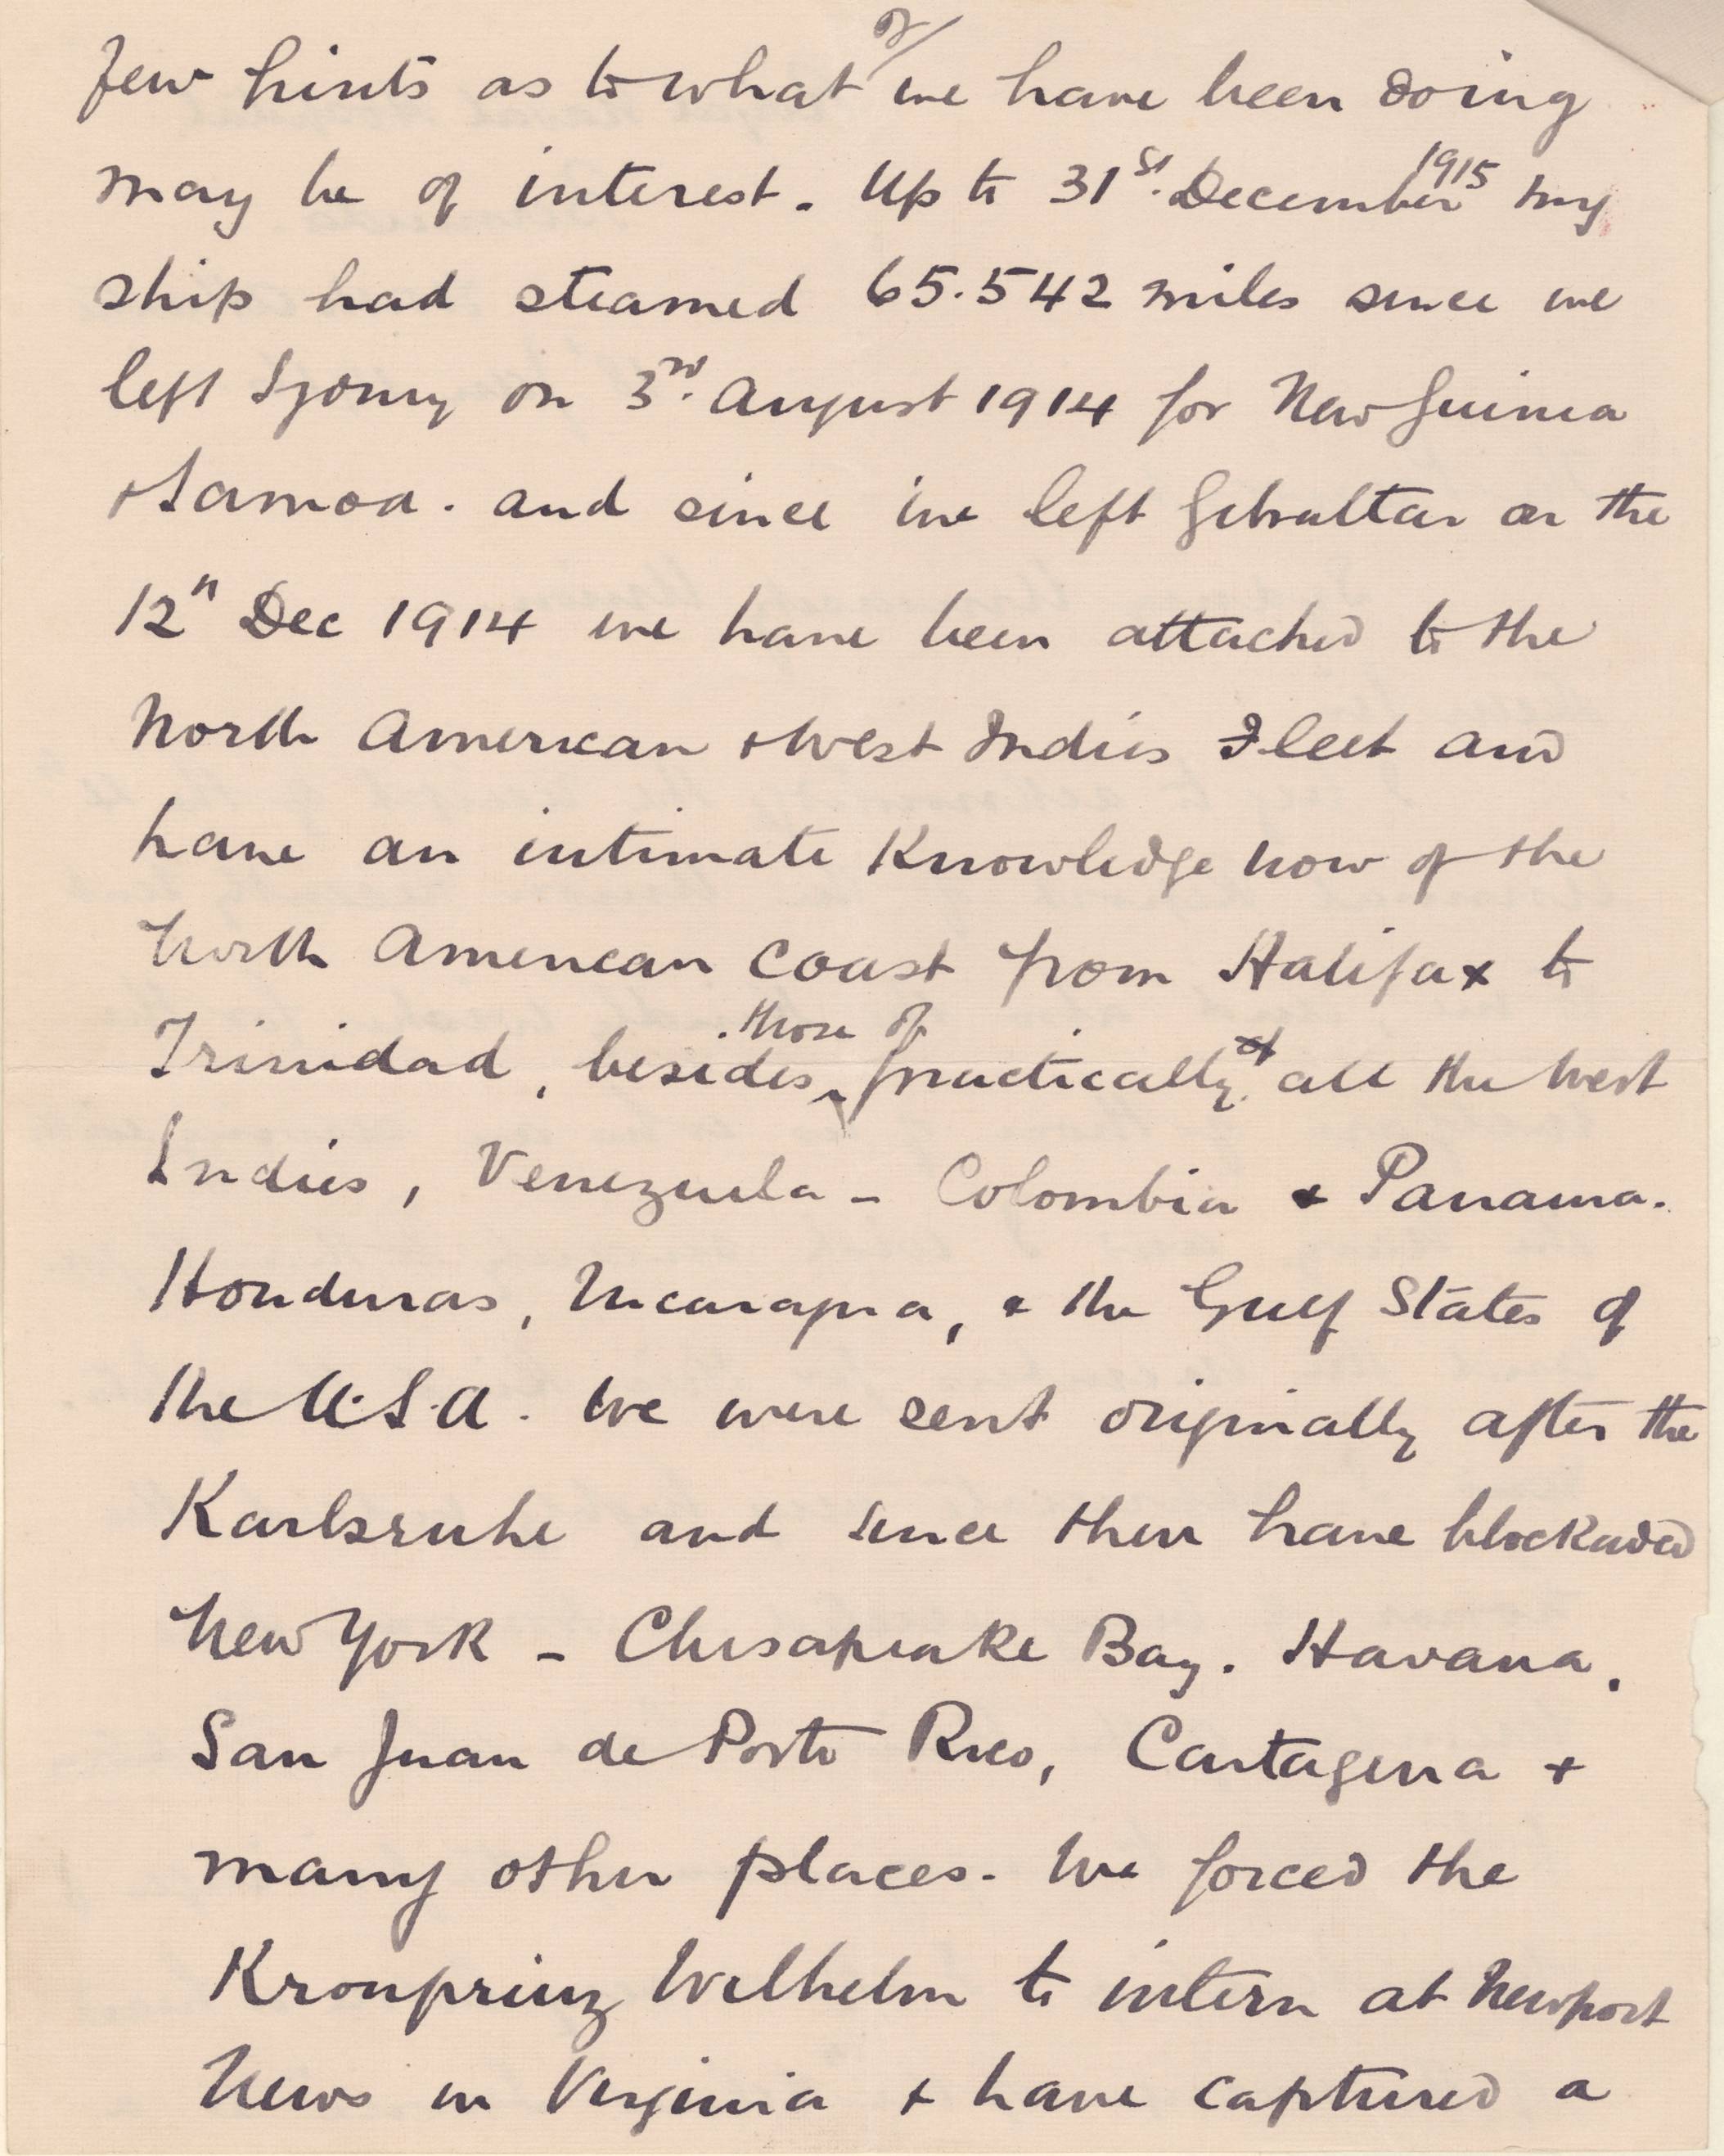 2/
few hints as to what we have been doing
may be of interest. Up to 31st. December 1915 my
ship had steamed 65.542 miles since we
left Sydney on 3rd. August 1914 for New Guinea
+ Samoa. and since we left Gibraltar on the
12th Dec 1914 we have been attached to the
North American + West Indies Fleet and
have an intimate Knowledge now of the
North American coast from Halifax to
Trinidad, besides those of practically of all the West
Indies, Venezuela - Colombia + Panama.
Honduras, Nicaragua, + the Gulf States of
the U.S.A. We were sent originally after the
Karlsruhe and since then have blockaded
New York - Chesapeake Bay. Havana,
San Juan de Porto Rico, Cartagena +
many other places. We forced the
Kronprinz Wilhelm to intern at Newport
News in Virginia + have captured a